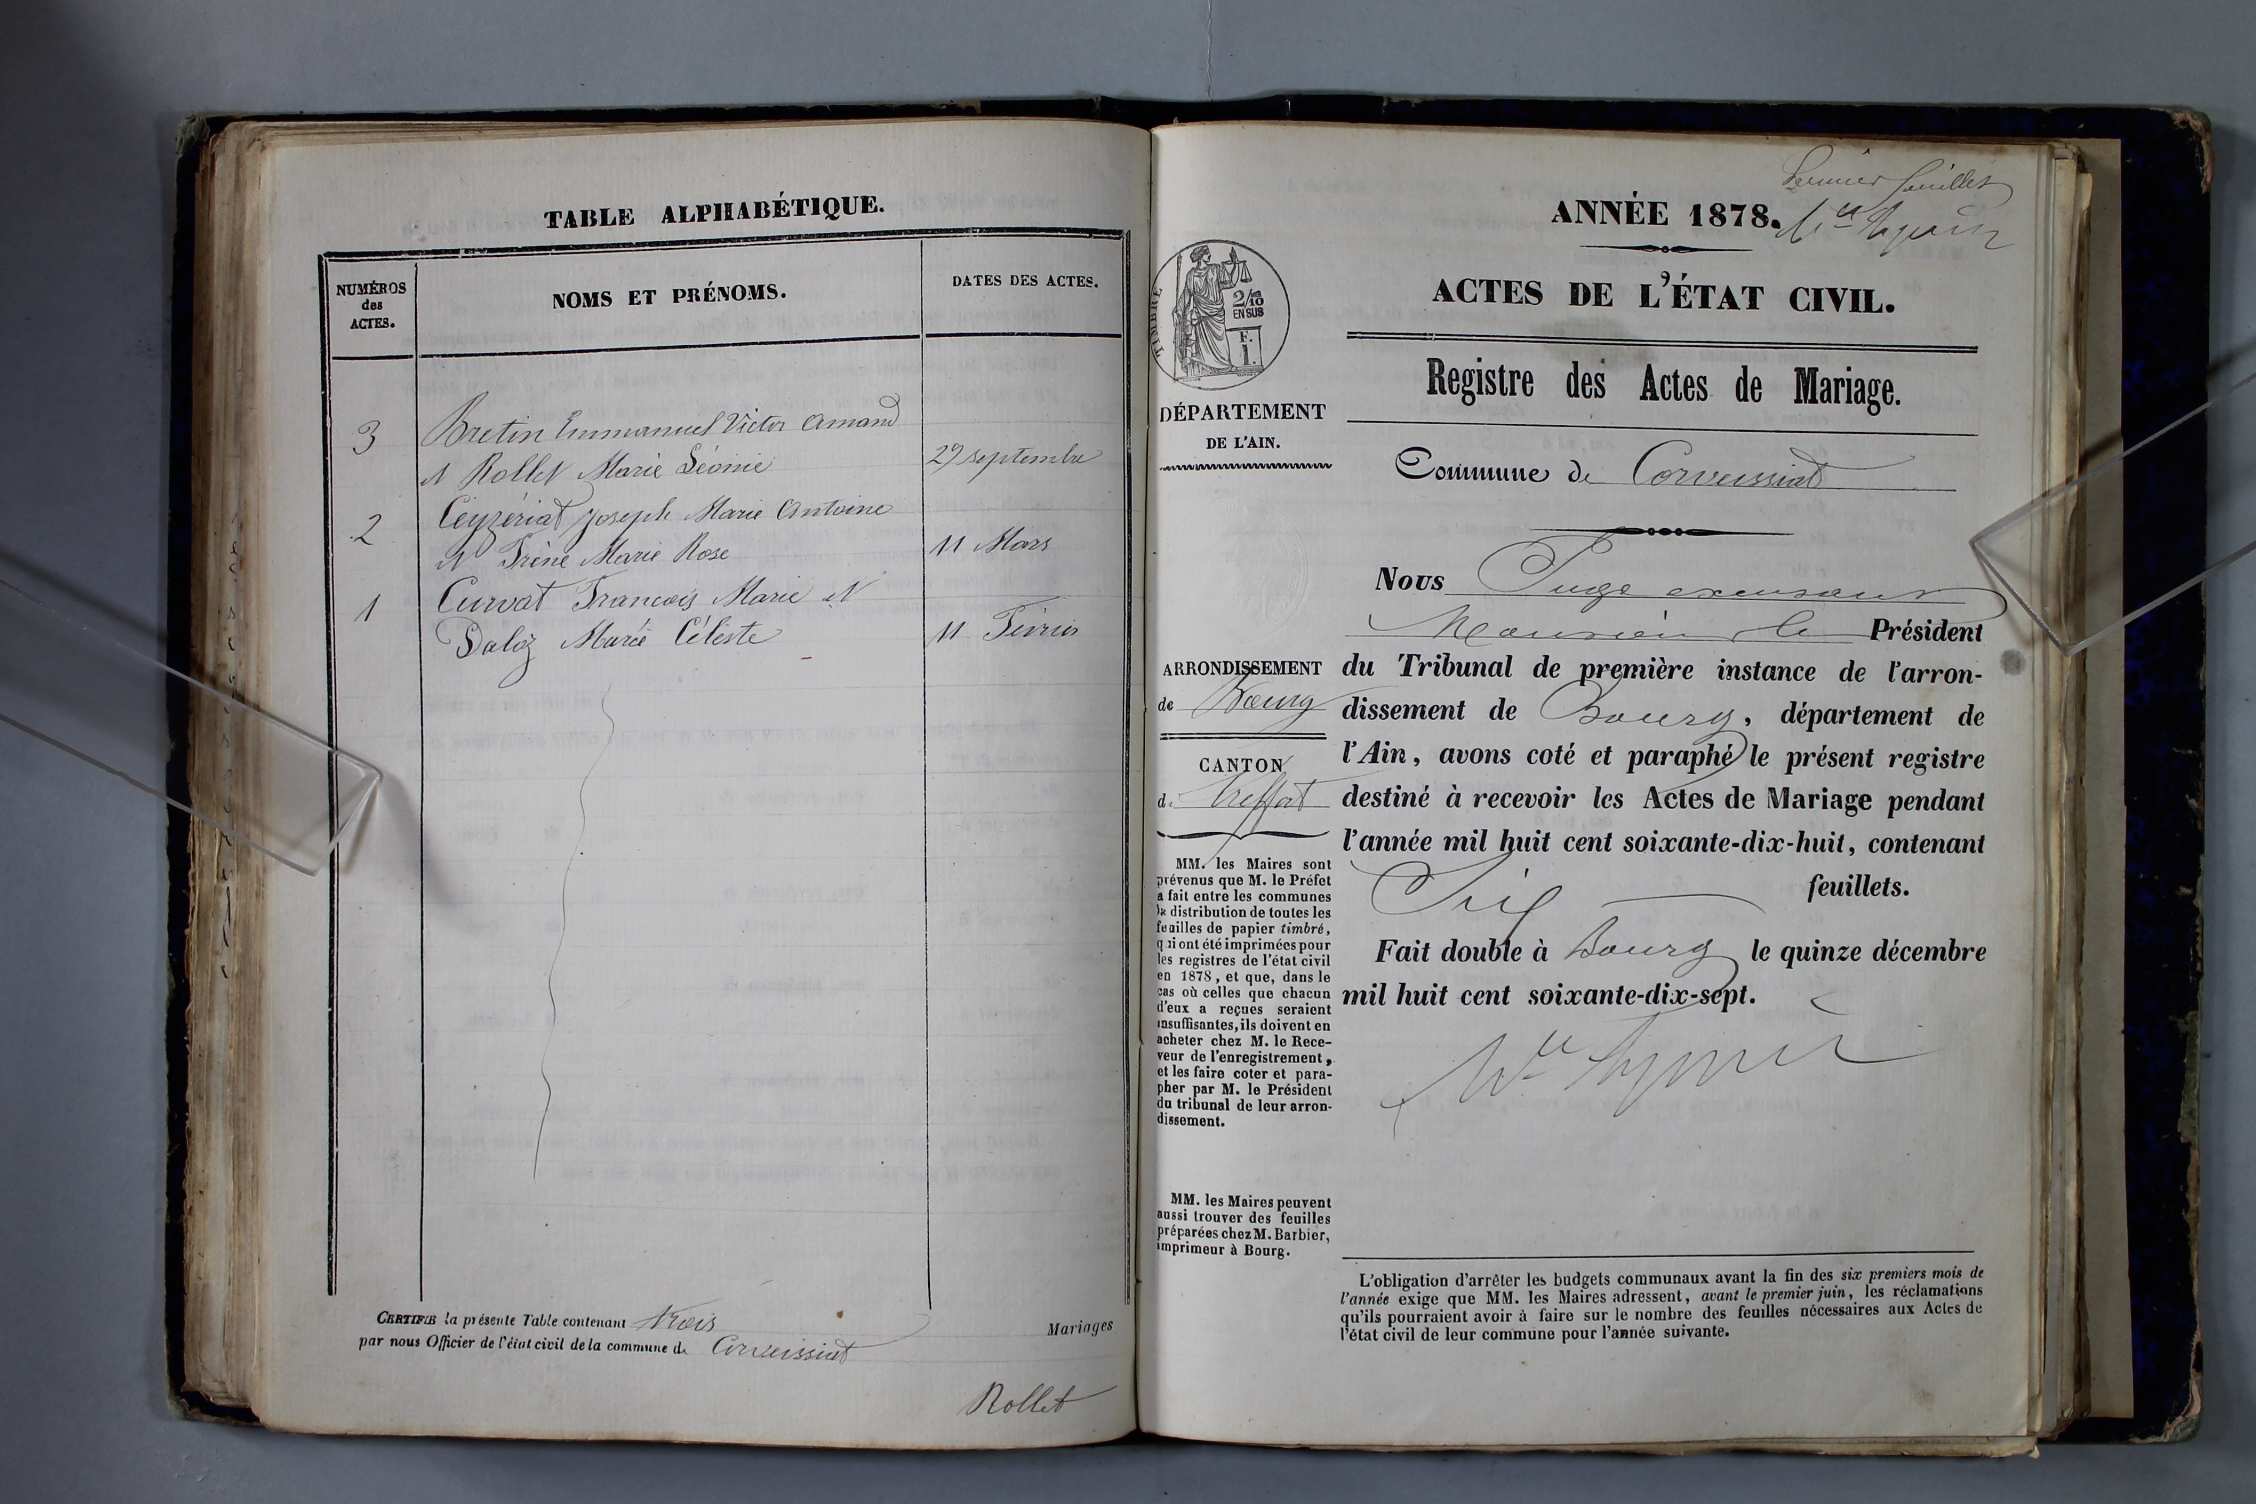 TABLE ALPHABÉTIQUE.
NUMÉROS
des
ACTES.
NOMS ET PRÉNOMS.
DATES DES ACTES.
3
Bretin Emmanuel Victor Amand
et Rollet Marie Léonie
29 septembre
2
Ceyzériat Joseph Marie Antoine
et Trêne Marie Rose
11 Mars
1
Curvat François Marie et
Daloz Marie Céleste
11 Février
CERTIFIE la présente Table contenant trois Mariages
par nous Officier de l'état civil de la commune de Corveissiat
Rollet
feuillet
ANNÉE 1878.
ACTES DE L'ÉTAT CIVIL.
TIMBRE
2/10
EN SUS
F.
1.
Registre des Actes de Mariage.
DÉPARTEMENT
DE L'AIN.
Commune de Corveissiat
Nous Juge
Monsieur le Président
ARRONDISSEMENT
de Bourg
CANTON
de Treffort
du Tribunal de première instance de l'arron-
dissement de Bourg, département de
l'Ain, avons coté et paraphé le présent registre
destiné à recevoir les Actes de Mariage pendant
l'année mil huit cent soixante-dix-huit, contenant
Six feuillets.
Fait double à Bourg le quinze décembre
mil huit cent soixante-dix-sept.
MM. les Maires sont
prévenus que M. le Préfet
a fait entre les communes
la distribution de toutes les
feuilles de papier timbré,
qui ont été imprimées pour
les registres de l'état civil
en 1878, et que, dans le
cas où celles que chacun
d'eux a reçues seraient
insuffisantes, ils doivent en
acheter chez M. le Rece-
veur de l'enregistrement,
et les faire coter et para-
pher par M. le Président
du tribunal de leur arron-
dissement.
MM. les Maires peuvent
aussi trouver des feuilles
préparées chez M. Barbier,
imprimeur à Bourg.
L'obligation d'arrêter les budgets communaux avant la fin des six premiers mois de
l'année exige que MM. les Maires adressent, avant le premier juin, les réclamations
qu'ils pourraient avoir à faire sur le nombre des feuilles nécessaires aux Actes de
l'état civil de leur commune pour l'année suivante.